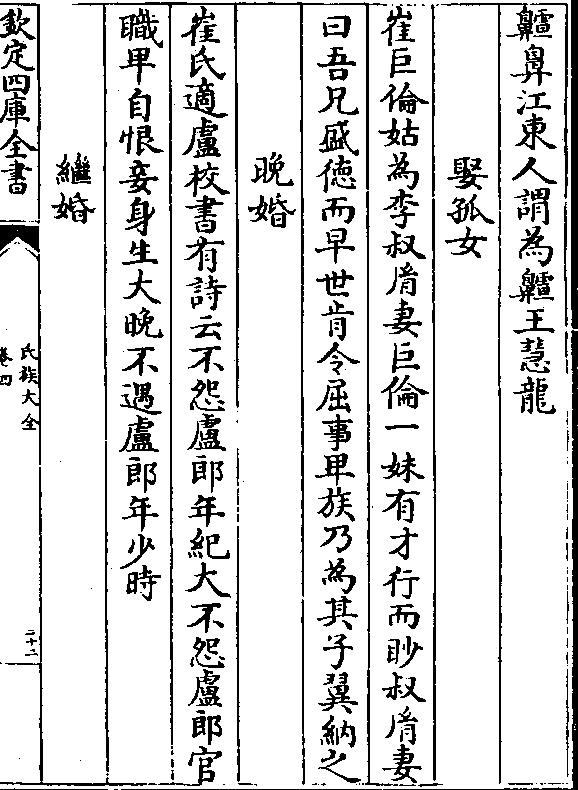 齇鼻江東人謂為齇王慧龍
娶孤女
崔巨倫姑為李叔胤妻巨倫一妹有才行而眇叔胤妻
曰吾兄盛徳而早世肯令屈事卑族乃為其子翼納之
晚婚
崔氏適盧校書有詩云不怨盧郎年紀大不怨盧郎官
職卑自恨妾身生大晚不遇盧郎年少時
繼婚
欽定四庫全書
氏族大全
卷四
二十二